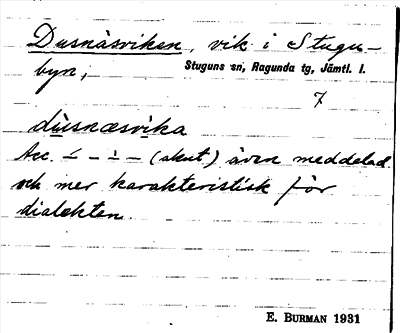 Dusnäsviken, vik i Stugu-
byn, Stuguns sn, Ragunda tg, Jämtl. l.
7
dùsnæsvika
Acc. – – (akut) även meddelad
och mer karakteristisk för
dialekten.
E. BURMAN 1931